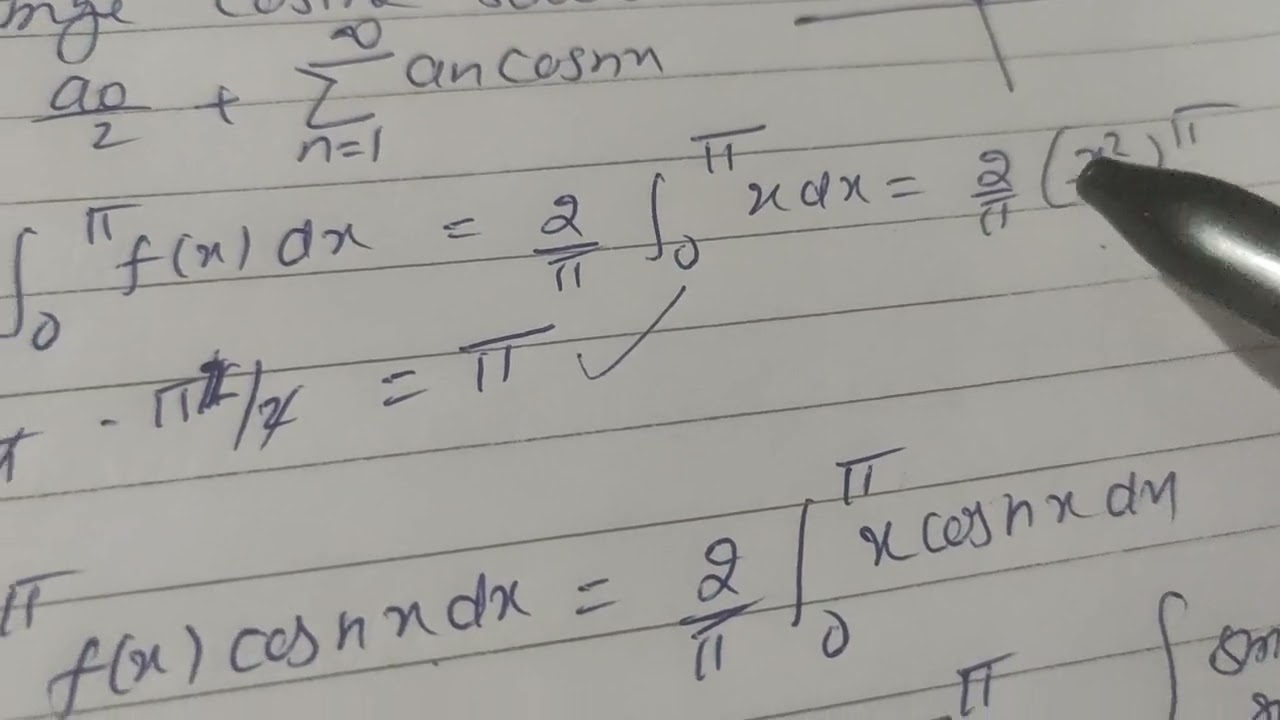 cosine
a0/2 + ∑_{n=1}^{∞} an cosnx
∫_0^π f(x) dx = 2/π ∫_0^π x dx = 2/π (x²)^π
· π²/2 = π ✓
π f(x) cosnxdx = 2/π ∫_0^π x cosnxdx
π ∫